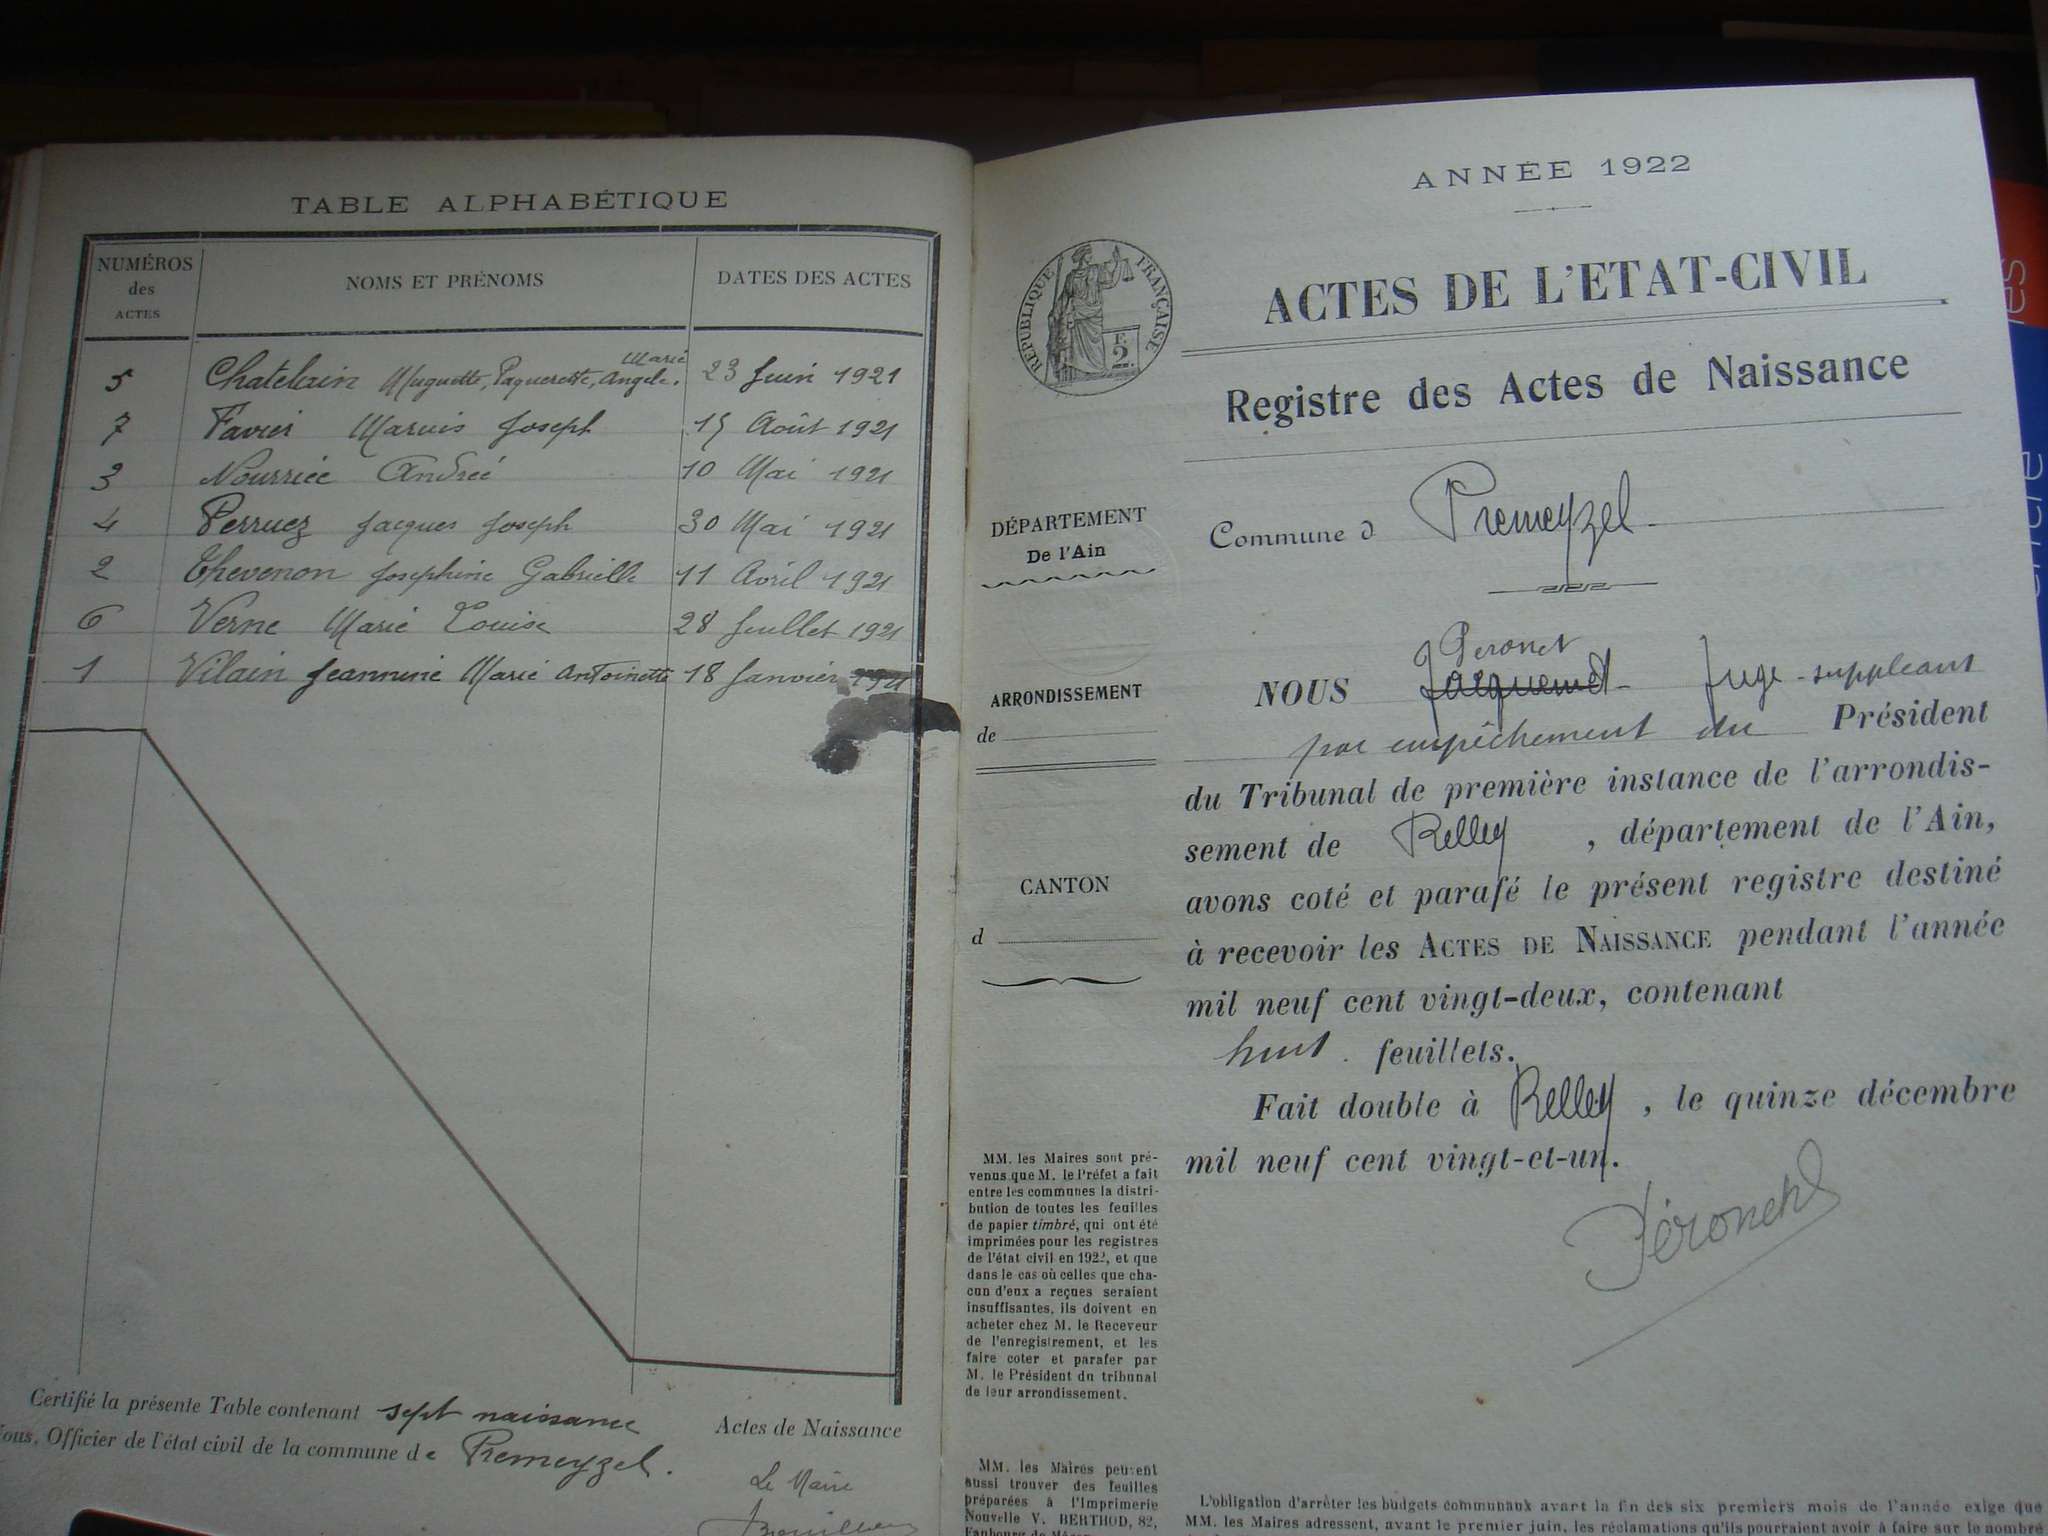 TABLE ALPHABÉTIQUE
NUMÉROS des ACTES NOMS ET PRÉNOMS DATES DES ACTES
Marie
5 Chatelain Muguette, Paquerette, Angele. 23 Juin 1921
7 Favier Marius Joseph 15 Août 1921
3 Nourriée Andrée 10 Mai 1921
4 Perruez Jacques Joseph 30 Mai 1921
2 Thevenon Josephine Gabrielle 11 Avril 1921
6 Verne Marie Louise 28 Juillet 1921
1 Vilain Jeannine Marie Antoinette 18 Janvier 1921
Certifié la présente Table contenant sept naissance Actes de Naissance
Nous, Officier de l'état civil de la commune de Premeyzel.
Le Maire
ANNÉE 1922
RÉPUBLIQUE FRANÇAISE
2
ACTES DE L'ETAT-CIVIL
Registre des Actes de Naissance
DÉPARTEMENT
De l'Ain
Commune d Premeyzel
ARRONDISSEMENT
de
CANTON
d
Peronet
NOUS Jacquemet Juge suppléant
par empêchement du Président
du Tribunal de première instance de l'arrondis-
sement de Belley, département de l'Ain,
avons coté et parafé le présent registre destiné
à recevoir les ACTES DE NAISSANCE pendant l'année
mil neuf cent vingt-deux, contenant
huit. feuillets.
Fait double à Belley, le quinze décembre
mil neuf cent vingt-et-un.
MM. les Maires sont pré-
venus que M. le Préfet a fait
entre les communes la distri-
bution de toutes les feuilles
de papier timbré, qui ont été
imprimées pour les registres
de l'état civil en 1922, et que
dans le cas où celles que cha-
cun d'eux a reçues seraient
insuffisantes, ils doivent en
acheter chez M. le Receveur
de l'enregistrement, et les
faire coter et parafer par
M. le Président du tribunal
de leur arrondissement.
MM. les Maires peuvent
aussi trouver des feuilles
préparées à l'Imprimerie
Nouvelle V. BERTHOD, 82,
L'obligation d'arrêter les budgets communaux avant la fin des six premiers mois de l'année exige que
MM. les Maires adressent, avant le premier juin, les réclamations qu'ils pourraient avoir à faire sur le nombre